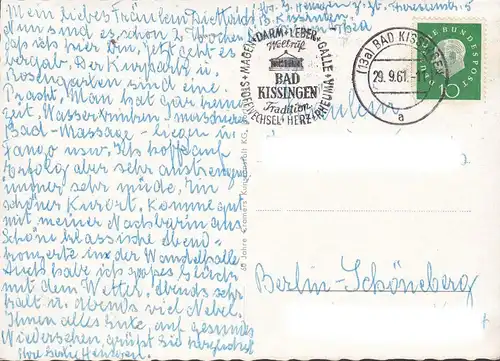 Mein liebes Fräulein Dietrich
Nun sind es schon 2 Wochen
das ich hier bin, jetzt geht es
bergab. Der Kurpark u.
Rosengarten sind eine
Pracht. Man hat gar keine
zeit, Wassertrinken
Bad - Massage - liegen u.
Fango usw. Ich hoffe auf
Erfolg aber sehr anstrengend
immer sehr müde, Ein
schöner Kurort, komme gut
mit meiner Nachbarin aus
Schöne klassische Abend-
konzerte in der Wandelhalle
Auch habe ich großes Glück
mit dem Wetter, abends sehr
kalt u. abends viel Nebel.
Ihnen alles Gute auf gesundes
Wiedersehen grüßt sie herzlichst
Ihre
Bad Kissingen
MAGEN · DARM · LEBER · GALLE · RHEUMA · HERZ · STOFFWECHSEL
Weltruf
BAD
KISSINGEN
Tradition
(13a) BAD KISSINGEN
29.9.61
a
DEUTSCHE BUNDESPOST
10
Berlin-Schöneberg